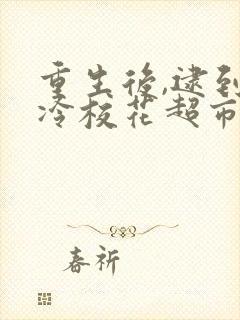 重生後,逮到
冷校花超市
春祈